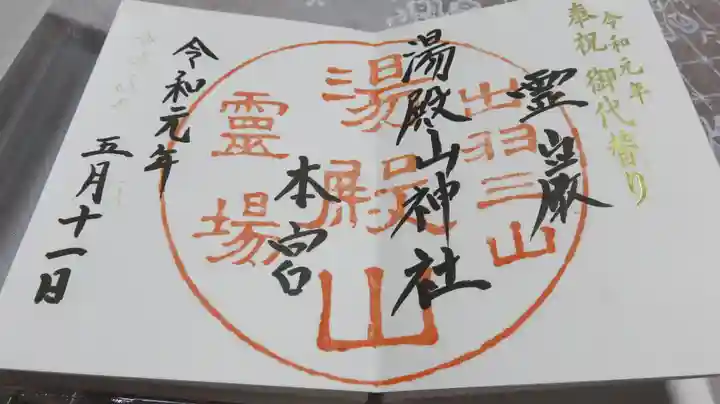 令和元年
奉祝 御代替り
霊巌
湯殿山神社
本宮
令和元年
五月十一日
出羽三山
湯殿山
靈場